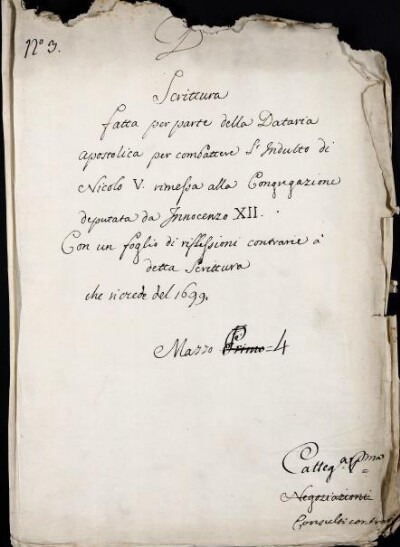 N.º 3.
Scrittura
fatta per parte della Dataria
apostolica per combattere l'Indulto di
Nicolò V. rimessa alla Congregazione
deputata da Innocenzo XII.
Con un foglio di riflessioni contrarie à
detta Scrittura
che si crede del 1699.
Mazzo Primo = 4
Categ.a P.ma
Negoziazioni
Consulti contro